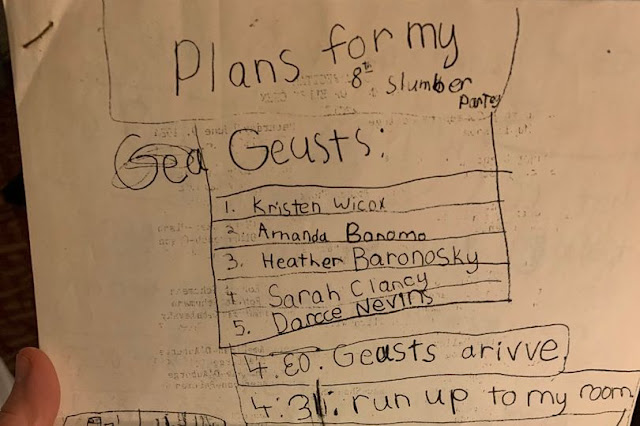 Plans for my
8th Slumber
Partey
Geusts:
1. Kristen Wicox
2. Amanda Bonomo
3. Heather Baronosky
4. Sarah Clancy
5. Darcce Nevins
4:30: Geusts arivve
4:31: run up to my room